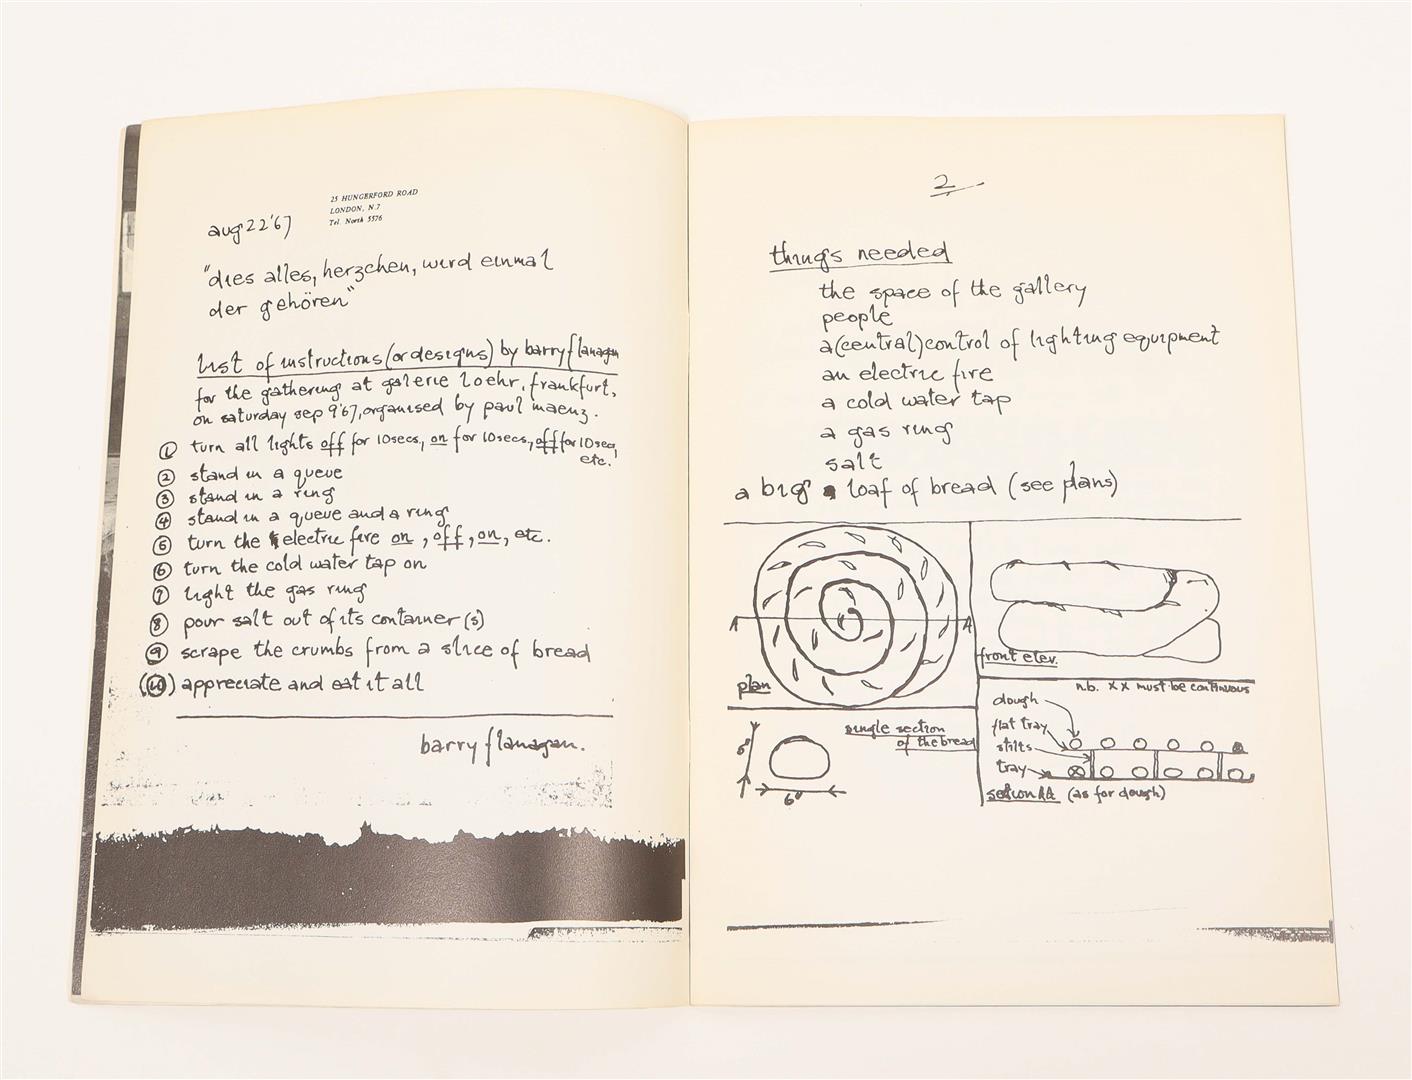 25 HUNGERFORD ROAD
LONDON, N.7
Tel. North 5576
aug 22 '67
"dies alles, herzchen, wird einmal
der gehören"
list of instructions (or designs) by barry flanagan
for the gathering at galerie loehr, frankfurt,
on saturday sep 9'67, organised by paul maenz.
① turn all lights off for 10secs, on for 10secs, off for 10sec,
etc.
② stand in a queue
③ stand in a ring
④ stand in a queue and a ring
⑤ turn the electric fire on, off, on, etc.
⑥ turn the cold water tap on
⑦ light the gas ring
⑧ pour salt out of its container(s)
⑨ scrape the crumbs from a slice of bread
(⑩) appreciate and eat it all
barry flanagan.
2
things needed
the space of the gallery
people
a (central) control of lighting equipment
an electric fire
a cold water tap
a gas ring
salt
a big loaf of bread (see plans)
A A
plan
front elev.
n.b. x x must be continuous
single section
of the bread
6"
6"
dough
flat tray
stilts
tray
section AA (as for dough)